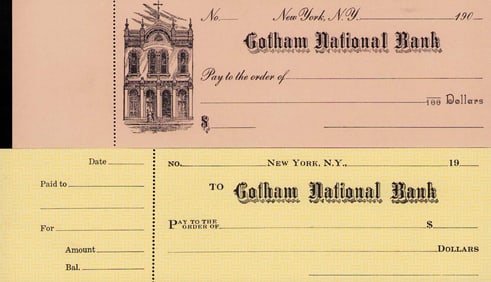 No. New York, N.Y. 190
Gotham National Bank
Pay to the order of
100 Dollars
$
Date
Paid to
For
Amount
Bal.
NO. NEW YORK, N.Y., 19
TO Gotham National Bank
PAY TO THE ORDER OF $
DOLLARS